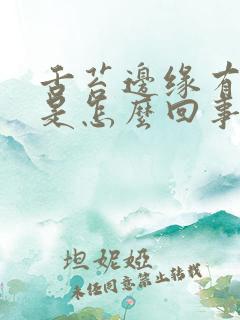 舌苔邊缘有
是怎麼回事
坦妮婭
未经同意禁止转载